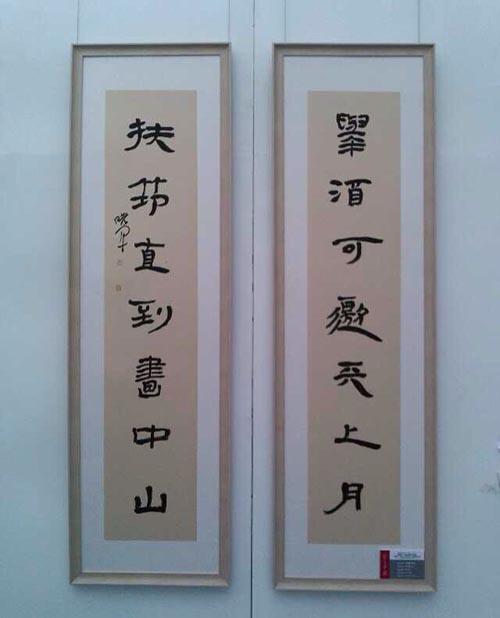 舉酒可邀天上月
扶筇直到畫中山